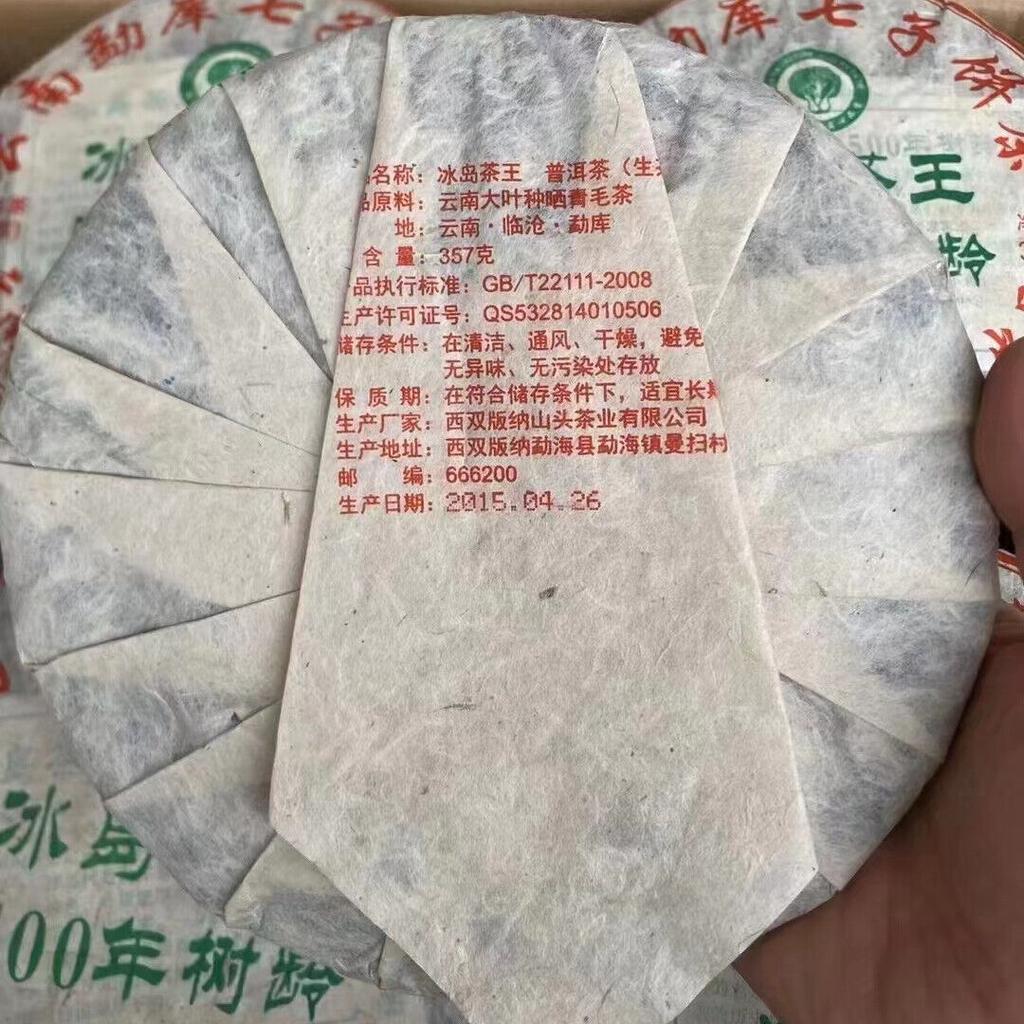 南勐库七
库七子饼茶
冰
茶王
龄
名称：冰岛茶王 普洱茶（生
品原料：云南大叶种晒青毛茶
地：云南·临沧·勐库
含 量：357克
品执行标准：GB/T22111-2008
生产许可证号：QS532814010506
储存条件：在清洁、通风、干燥，避免
无异味、无污染处存放
保 质 期：在符合储存条件下，适宜长期
生产厂家：西双版纳山头茶业有限公司
生产地址：西双版纳勐海县勐海镇曼扫村
邮 编：666200
生产日期：2015.04.26
冰岛
00年树龄